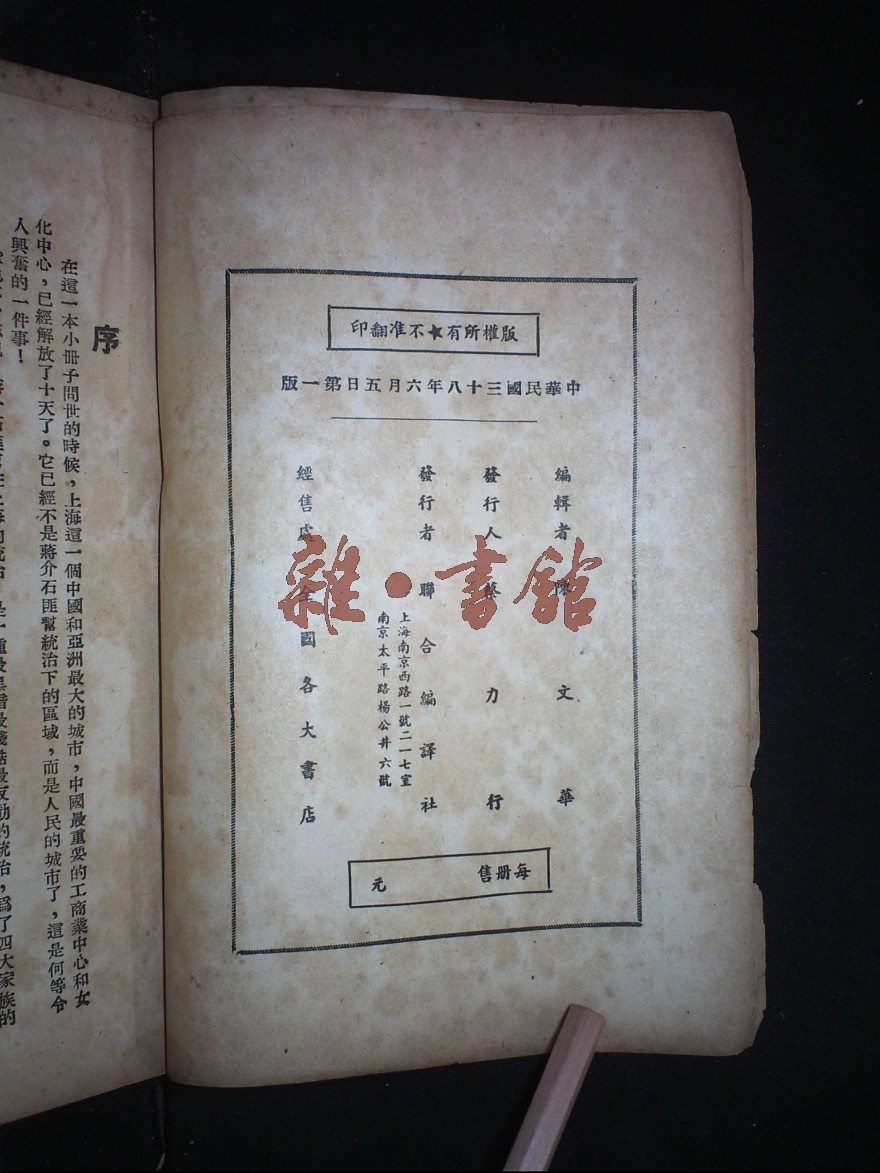 版權所有★不准翻印
中華民國三十八年六月五日第一版
編輯者 陳文華
發行人 蔡力行
發行者 聯合編譯社
上海南京西路一號二一七室
南京太平路楊公井六號
經售處 全國各大書店
每册售 元
雜·書館
序
在這一本小冊子問世的時候，上海這一個中國和亞洲最大的城市，中國最重要的工商業中心和文
化中心，已經解放了十天了。它已經不是蔣介石匪幫統治下的區域，而是人民的城市了，這是何等令
人興奮的一件事！
的統治，是一種最黑暗最殘酷最反動的統治，爲了四大家族的